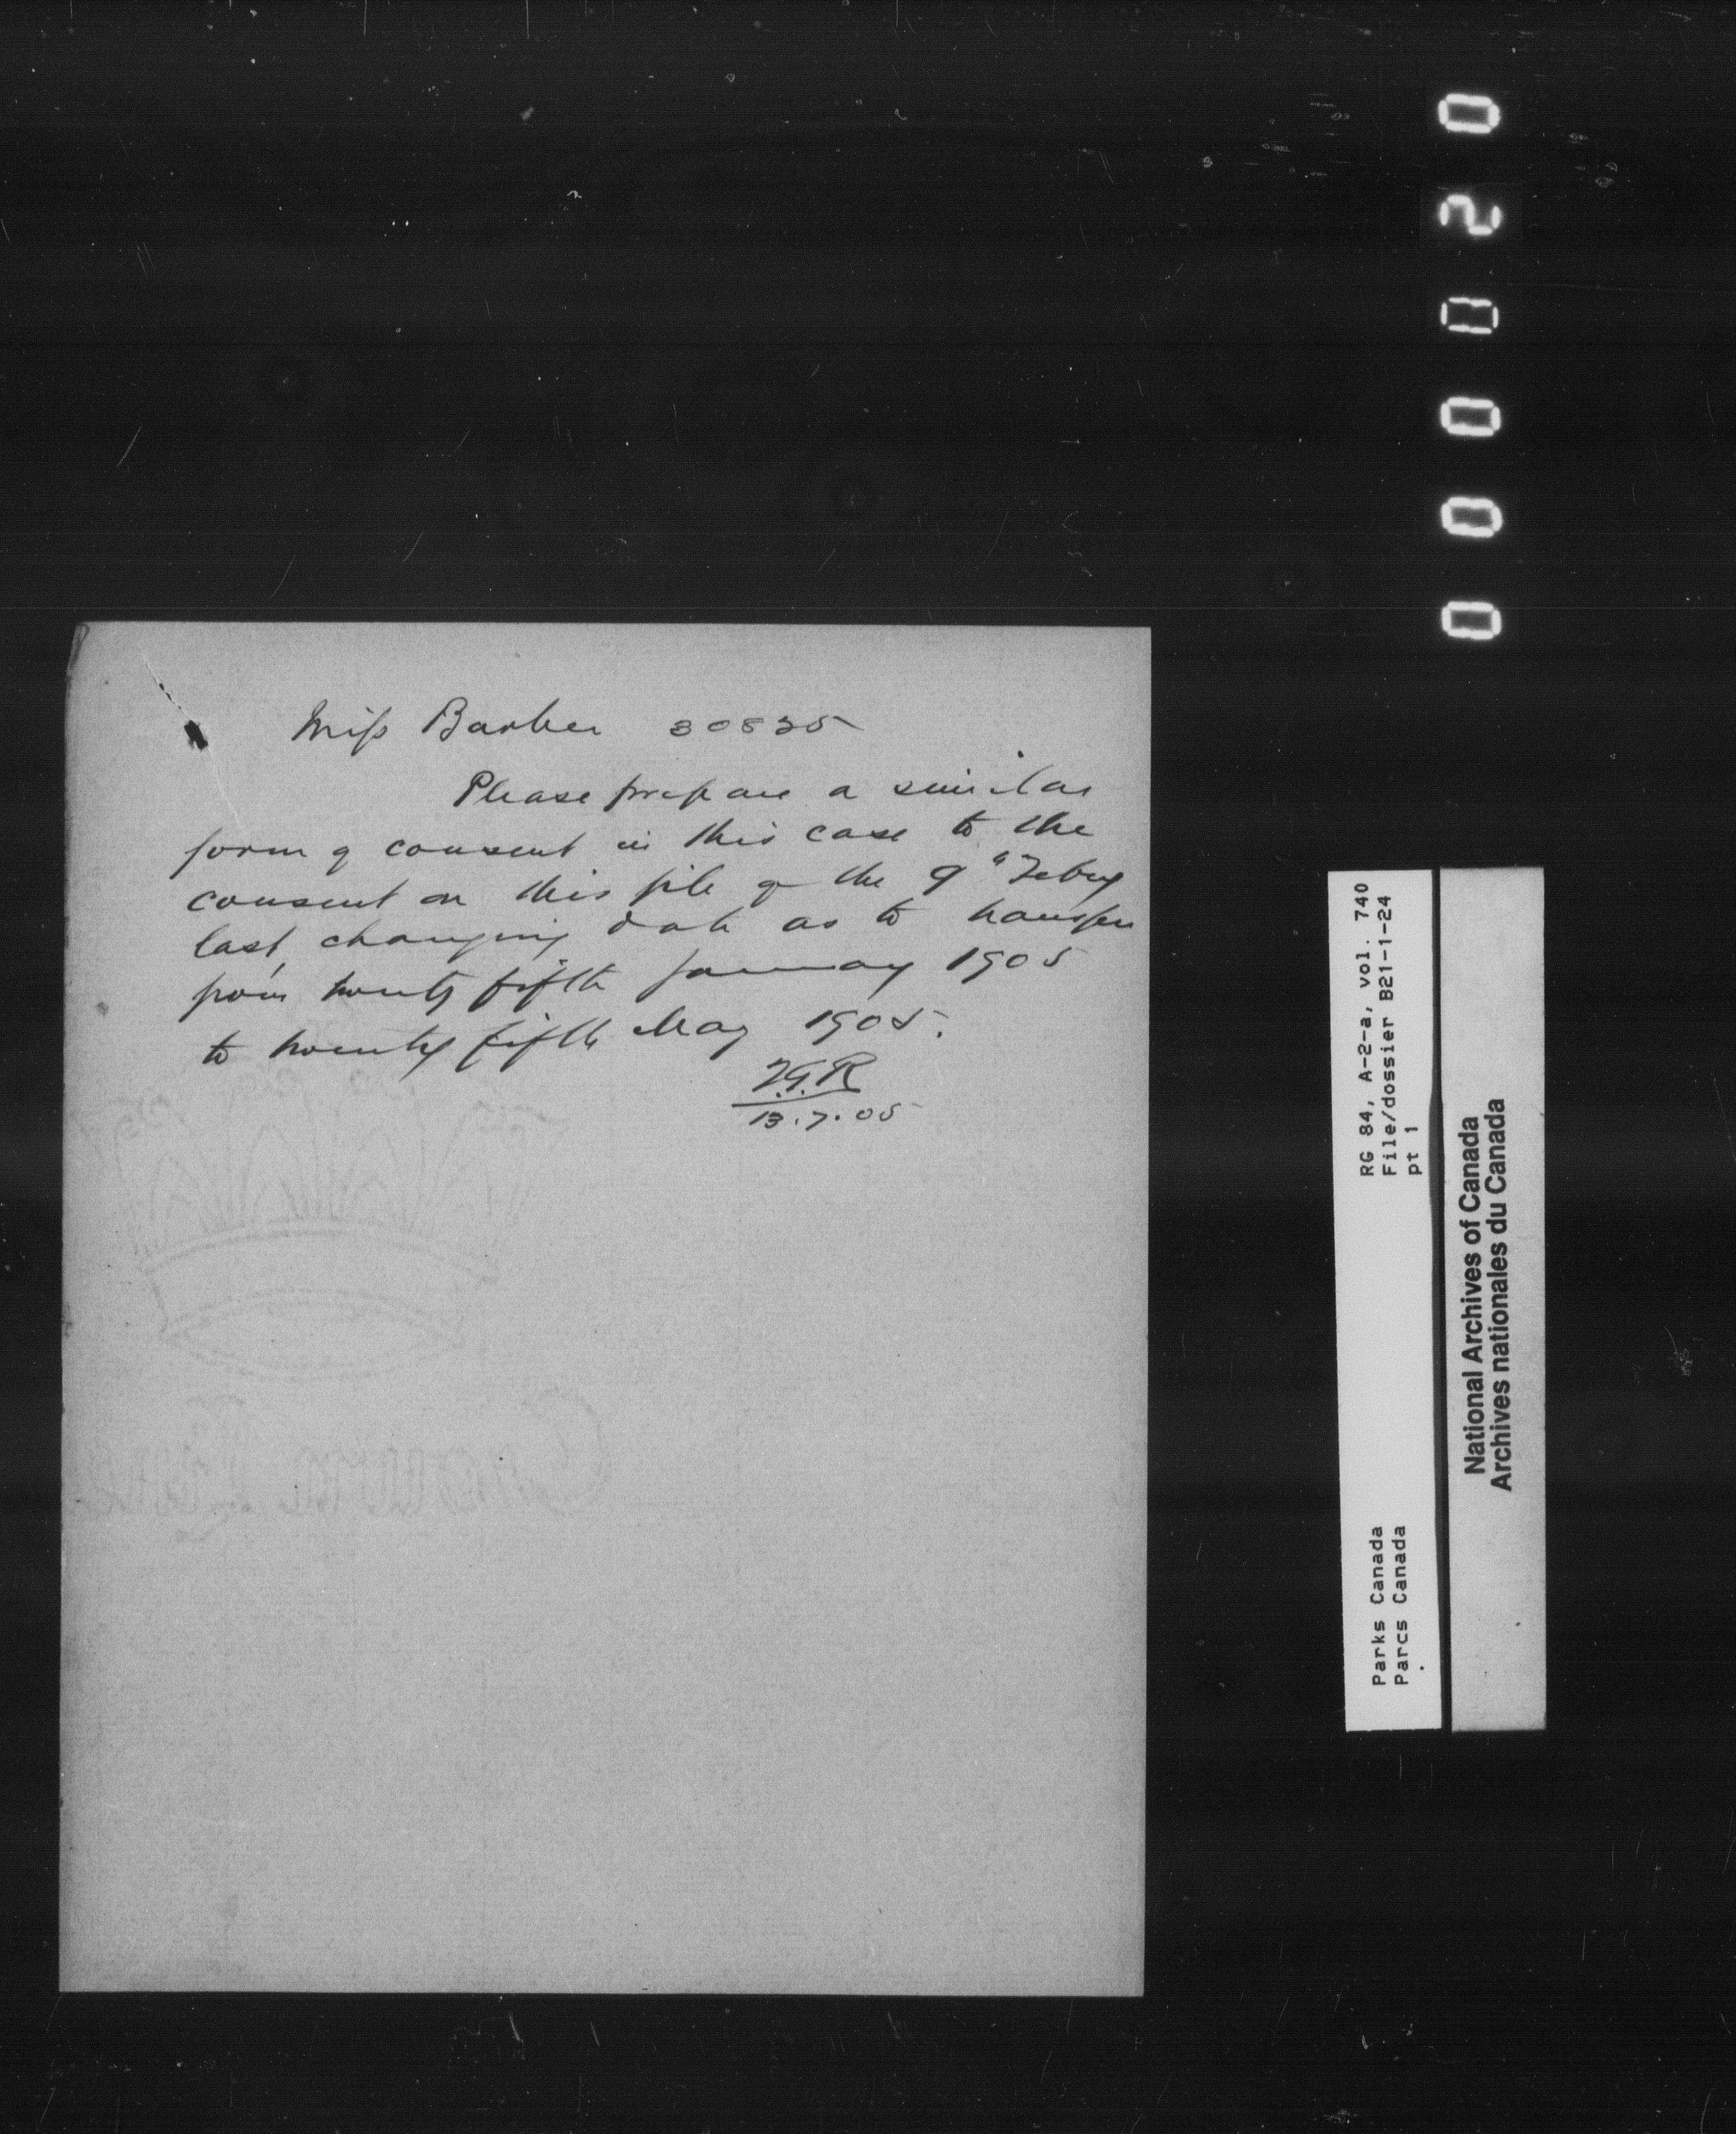 Miss Barber 30825
Please prepare a similar
form of consent in this case to the
consent on this file of the 9" Febry
last, changing date as to transfer
from twenty fifth January 1905
to twenty fifth May 1905.
13.7.05
Crown Vellum
000020
RG 84, A-2-a, vol. 740
File/dossier B21-1-24
pt 1
Parks Canada
Parcs Canada
National Archives of Canada
Archives nationales du Canada